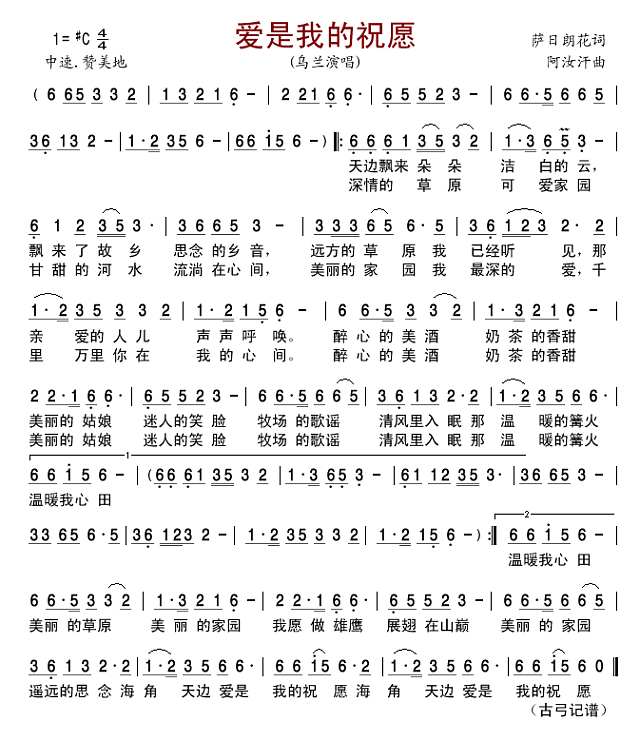 爱是我的祝愿
1=#C 4/4
萨日朗花词
中速.赞美地
(乌兰演唱)
阿汝汗曲
(6 653 3 2·|1 3 2 1 6 -|1·2 1 6 1 2·|6 5 5 2 3 -|6 6·5 6 6 5
3 6 1 3 2 -|1·2 3 5 6 -|6 6 1 5 6 -)‖:6 6 6 1 3 5 3 2|1·3 6 5 3 -|
天边飘来 朵 朵 洁 白的 云,
深情的 草 原 可 爱家 园
6 1 2 3 5 3·|3 6 6 5 3 -|3 3 3 6 5 6·5|3 6 1 2 3 2·2|
飘 来 了 故 乡 思念 的乡 音, 远方的 草 原 我 已经听 见,那
甘 甜 的 河 水 流淌 在心 间, 美丽的 家 园 我 最深的 爱,千
1·2 3 5 3 3 2|1·2 1 2 1 5 6 -|6 6·5 3 3 2|1·2 3 5 3 3 2|
亲 爱的 人 儿 声 声 呼 唤。 醉 心 的 美 酒 奶 茶 的香甜
里 万里 你 在 我 的 心 间。 醉 心 的 美 酒 奶 茶 的香甜
2 2·1 6 6·|6 5 5 2 3 -|6 6·5 6 6 5|3 6 1 3 2·2|1·2 3 5 6 6·|
美丽 的 姑娘 迷人 的 笑 脸 牧场 的 歌谣 清风里入 眠 那 温 暖的 篝火
美丽 的 姑娘 迷人 的 笑 脸 牧场 的 歌谣 清风里入 眠 那 温 暖的 篝火
1
6 6 1 5 6 -|(6 6 6 1 3 5 3 2|1·3 6 5 3 -|6 1 1 2 3 5 3·|
温暖我心 田
3 3 6 5 6·5|3 6 1 2 3 2 -|1·2 3 5 3 3 2|1·2 1 5 6 -):‖
2
6 6 1 5 6 -|
温暖我心 田
6 6·5 3 3 2|1·3 2 1 6·|2 2·1 6 6·|6 5 5 2 3·|6 6·5 6 6 5|
美丽 的草原 美 丽 的家园 我愿 做 雄鹰 展翅 在山巅 美丽 的 家园
3 6 1 3 2·2|1·2 3 5 6 6·|6 6 1 5 3·2|1·2 3 5 6 6·|6 6 1 5 6 0‖
遥远的思 念 海 角 天边 爱是 我的祝 愿 海 角 天边 爱是 我的祝 愿
(古弓记谱)